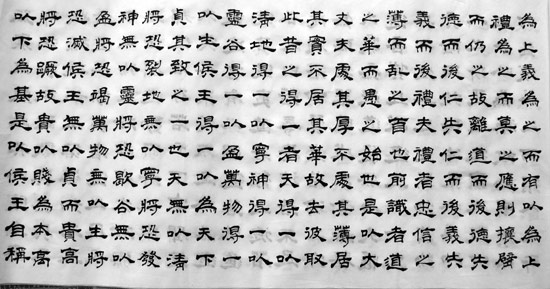 為上義為之而有以為上
禮為之而莫之應則攘臂
而仍之故離道而後德失
德而後仁失仁而後義失
義而後禮夫禮者忠信之
薄而亂之首也前識者道
之華而愚之始也是以大
丈夫處其厚不處其薄居
其實不居其華故去彼取
此昔之得一者天得一以
清地得一以寧神得一以
靈谷得一以盈萬物得一
以生候王得一以為天下
貞其致之一也天無以清
將恐裂地無以寧將恐發
神無以靈將恐歇谷無以
盈將恐竭萬物無以生將
恐滅候王無以貞而貴高
將恐蹶故貴以賤為本高
以下為基是以候王自稱